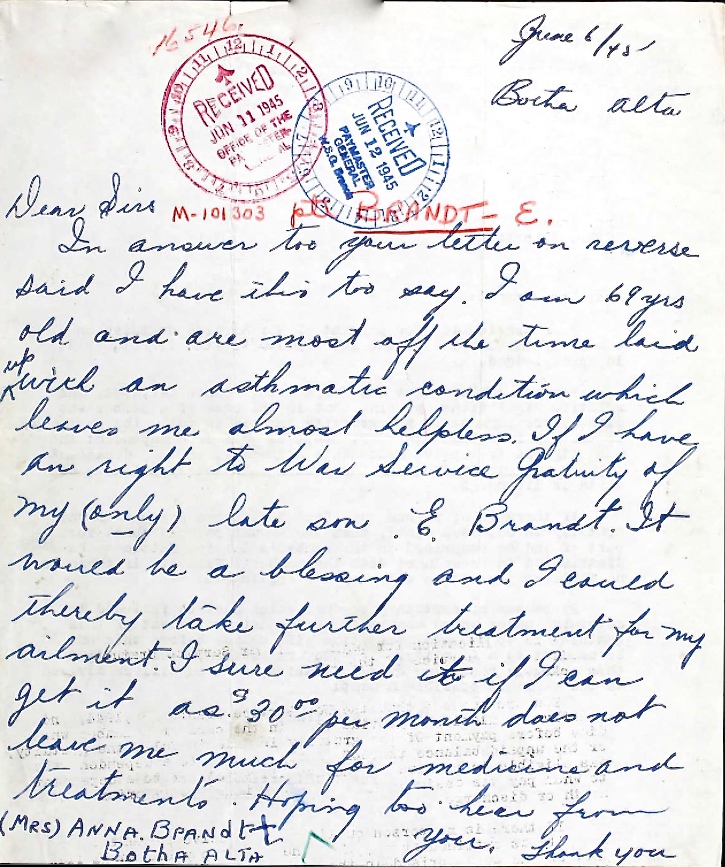 16546.
June 6/45
Botha alta
RECEIVED
JUN 11 1945
OFFICE OF THE
RECEIVED
JUN 12 1945
PAYMASTER
GENERAL
W.S.G. Branch
Dear Sirs
M-101303 pte BRANDT - E.
In answer too your letter on reverse
said I have this too say. I am 69 yrs
old and are most off the time laid
up with an asthmatic condition which
leaves me almost helpless. If I have
an right to War Service Gratuity of
my (only) late son E. Brandt. It
would be a blessing and I could
thereby take further treatment for my
ailment I sure need it if I can
get it as $30.00 per month does not
leave me much for medicine and
treatments. Hoping too hear from
you. Thank you
(MRS) ANNA. BRANDT
BOTHA ALTA